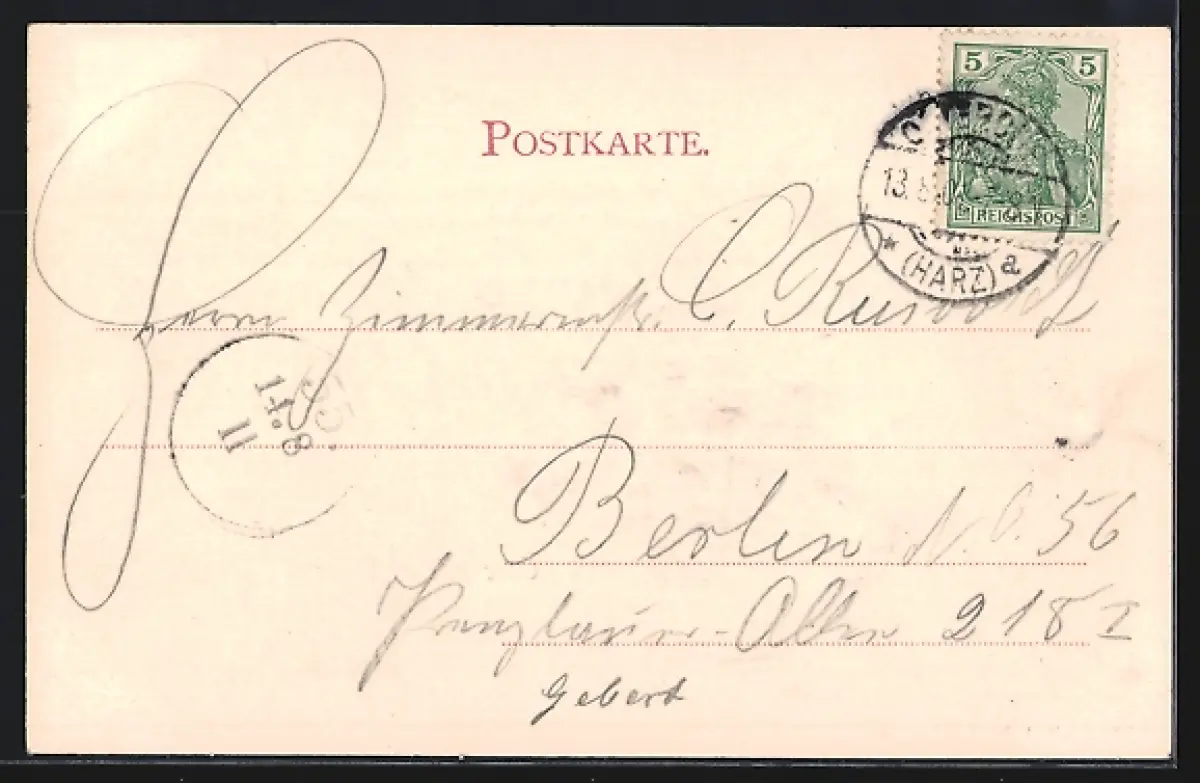 5 5
POSTKARTE.
13.
REICHSPOST
* (HARZ) a
Herrn Zimmermstr. C.
55.
14.8
11
Berlin N.O. 56
Prenzlauer-Allee 218 I
Gebert